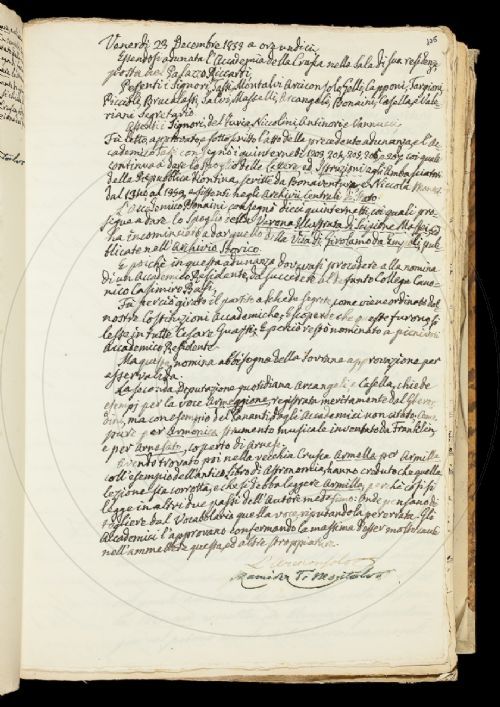 106
Venerdì 23 Decembre 1853 a ore undici.
Essendo adunata l'Accademia della Crusca nella sala di sua residenza
posta nel Palazzo Riccardi,
Presenti i Signori, Arciconsolo Gallo, Capponi, Targioni,
Piccioli, Brucalassi, Salvi, Masselli, Arcangeli, Bonaini, Casella, e Vale-
riani Segretario.
Assenti i Signori, del Furia, Niccolini, Antinori e Vannucci,
Fu letto, approvato e sottoscritto l'atto della precedente adunanza, e l'Ac-
cademico consegnò i quinterni di coi quali
continua a dare lo spoglio delle Lettere ed Istruzioni agli Ambasciatori
della Repubblica Fiorentina scritte da Bonaventura e Niccola
dal al esistenti negli Archivii Centrali di Stato.
L'Accademico Bonaini consegnò dieci quinternetti, coi quali pro-
segue a dare lo Spoglio della Verona Illustrata di Scipione Maffei, ed
ha incominciato a dar quello delle Vite di pub-
blicate nell'Archivio Storico.
E poichè in questa adunanza dovevasi procedere alla nomina
di un Accademico Residente, da succedere al defunto Collega Cano-
nico Casimiro Basi,
Fu perciò girato il partito a schede segrete, come viene ordinato dal
nostre Costituzioni Accademiche; e scoperte che queste furono, si
lesse in tutte Cesare Guasti; e perciò restò nominato a pieni voti
Accademico Residente.
Ma questa nomina abbisogna della Sovrana approvazione per
esser valida.
La seconda Deputazione quotidiana Arcangeli e Casella, chiede
esempi per la voce Armeggione, registrata meritamente dal
ma con esempio del Fanfani, dagli Accademici non citato;
pure per Armonica, strumento musicale inventato da Franklin;
e per Arnesato, coperto di arnesi.
Avendo trovato poi nella vecchia Crusca Armella per Armilla
coll'esempio dell'antico Libro di Astronomia, hanno creduto che quella
lezione sia corrotta, e che si debba leggere Armilla, perchè così si
legge in altri due passi dell'Autore medesimo. Onde pensano di
togliere dal Vocabolario quella voce, reputandola per errata. Gli
Accademici l'approvano confermando la massima d'esser molto cauti
nell'ammettere questa, ed altre storpiature.